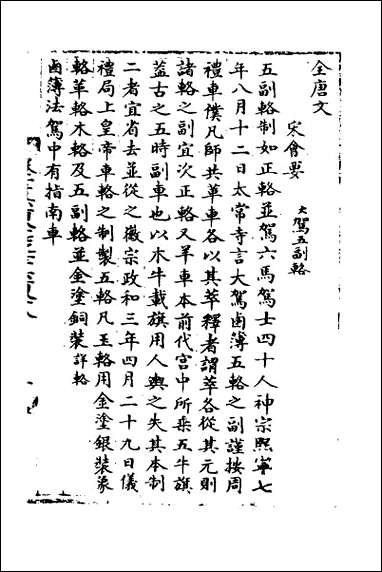 全唐文
宋會要
大駕五副輅
五副輅制如正輅並駕六馬駕士四十人神宗熙寧七
年八月十二日太常寺言大駕鹵簿五輅之副謹按周
禮車僕凡師共革車各以其萃釋者謂萃各從其元則
諸輅之副宜次正輅又羊車本前代宫中所乗五牛旗
葢古之五時副車也以木牛載旗用人輿之失其本制
二者宜省去並從之徽宗政和三年四月二十九日儀
禮局上皇帝車輅之制製五輅凡玉輅用金塗銀裝象
輅革輅木輅及五副輅並金塗銅裝詳輅
鹵簿法駕中有指南車